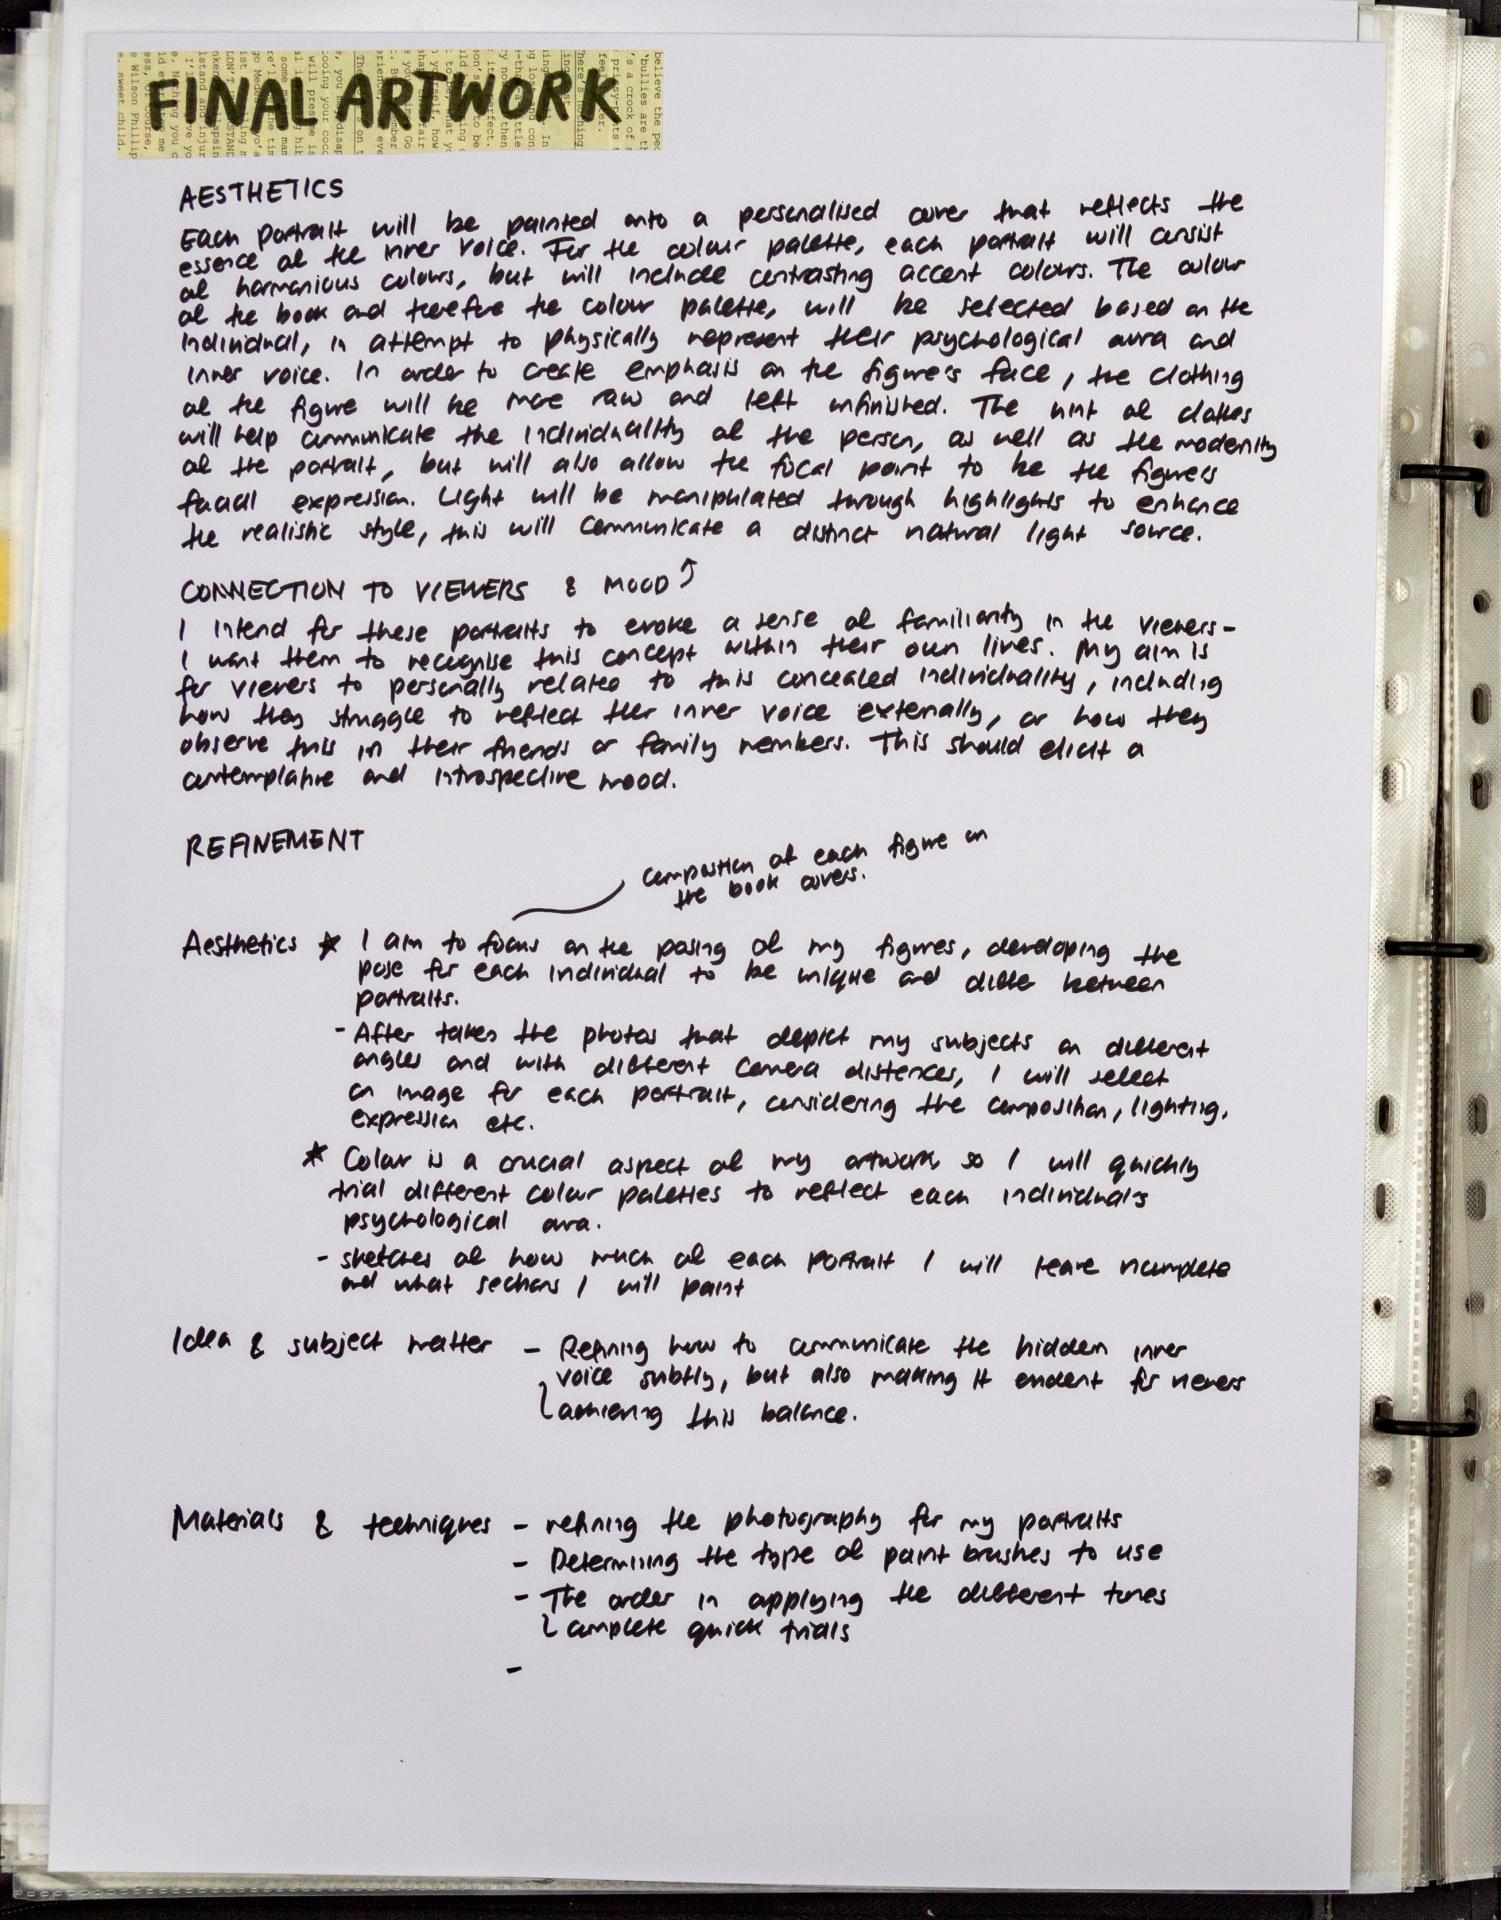 FINAL ARTWORK
AESTHETICS
Each portrait will be painted onto a personalised cover that reflects the
essence of the inner voice. For the colour palette, each portrait will consist
of harmonious colours, but will include contrasting accent colours. The colour
of the book and therefore the colour palette, will be selected based on the
individual, in attempt to physically represent their psychological aura and
inner voice. In order to create emphasis on the figure's face, the clothing
of the figure will be more raw and left unfinished. The hint of clothes
will help communicate the individuality of the person, as well as the modernity
of the portrait, but will also allow the focal point to be the figure's
facial expression. Light will be manipulated through highlights to enhance
the realistic style, this will communicate a distinct natural light source.
CONNECTION TO VIEWERS & MOOD
I intend for these portraits to evoke a sense of familiarity in the viewers-
I want them to recognise this concept within their own lives. My aim is
for viewers to personally related to this concealed individuality, including
how they struggle to reflect their inner voice externally, or how they
observe this in their friends or family members. This should elicit a
contemplative and introspective mood.
REFINEMENT
composition of each figure on
the book covers.
Aesthetics * I aim to focus on the posing of my figures, developing the
pose for each individual to be unique and differ between
portraits.
- After taken the photos that depict my subjects on different
angles and with different camera distances, I will select
an image for each portrait, considering the composition, lighting,
expression etc.
* Colour is a crucial aspect of my artwork so I will quickly
trial different colour palettes to reflect each individual's
psychological aura.
- sketches of how much of each portrait I will leave incomplete
and what sections I will paint
Idea & subject matter - Refining how to communicate the hidden inner
voice subtly, but also making it evident for viewers
achieving this balance.
Materials & techniques - refining the photography for my portraits
- Determining the type of paint brushes to use
- The order in applying the different tones
complete quick trials
-